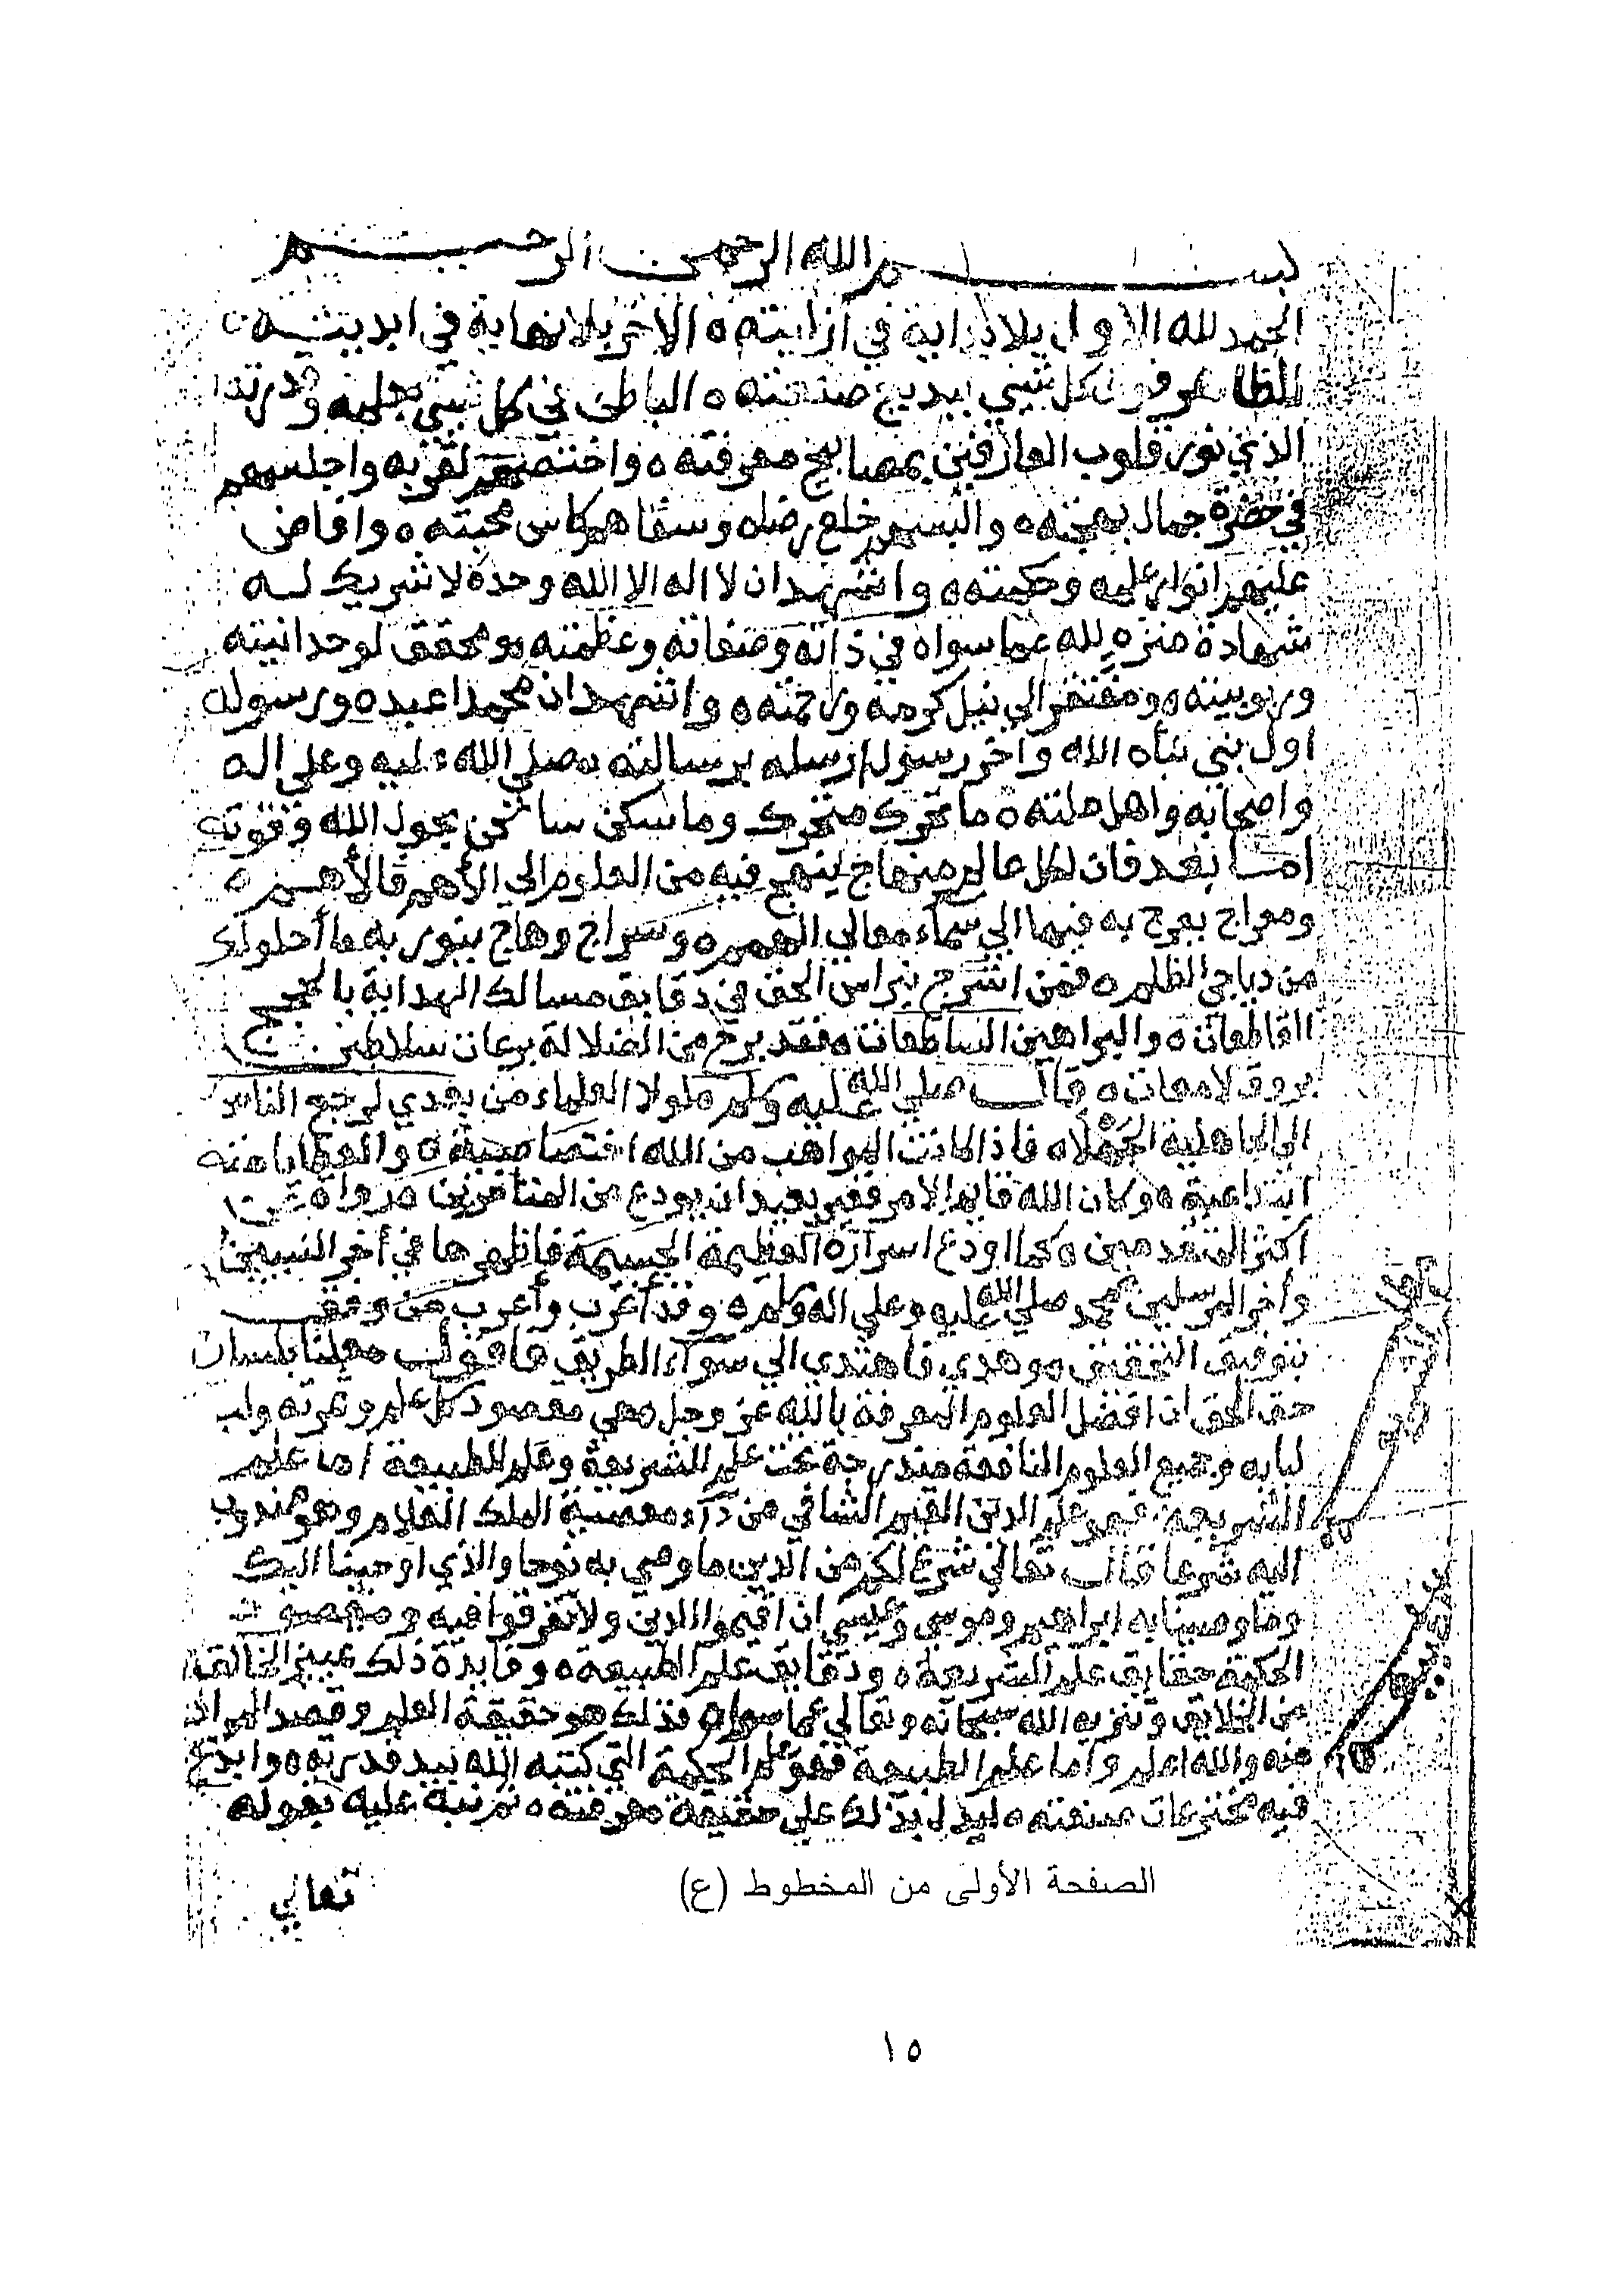 بسم الله الرحمن الرحيم
الحمد لله الاول بلا بداية في أزليته ه الاخر بلا نهاية في ابديته
الظاهر فوق كل شيي ببديع صنعته ه الباطن في كل شيي بعلمه وقدرته
الذي نور قلوب العارفين بمصابيح معرفته ه واختصهم لقربه واجلسهم
في حضرة جمال بهجته ه والبسهم خلع رضاه وسقاهم كاس محبته ه وافاض
عليهم انوار علمه وحكمته ه واشهد ان لا اله الا الله وحدة لا شريك لــه
شهادة منزه لله عما سواه في ذاته وصفاته وعظمته ه ومحقق لوحدانيته
وربوبيته ه ومفتقر الي نيل كرمه ورحمته ه واشهد ان محمدا عبده ورسوله
اول نبي نبأه الاه واخر رسول ارسله برسالته ه صلي الله عليه وعلي اله
واصحابه واهل ملته ه ما تحرك متحرك وما سكن ساكن بحول الله وقوته
امــا بعد فان لكل عالم منهاج ينهج فيه من العلوم الي الأهم فالأهــم ه
ومعراج يعرج به فيها الي سمآء معالي الهمم ه وسراج وهاج ينور به ما أحلولك
من دياجي الظلم ه فمن اسْرج نبراس الحق في دقايق مسالك الهداية بالحجج
القاطعات ه والبراهين الساطعات ه فقد برح من الضلالة
بروق لامعات ه قال صلي الله عليه وسلم ه لولا العلماء من بعدي لرجع الناس
الي الجاهلية الجُهْلَاه فاذا كانت المواهب من الله اختصاصية ه والعطايا منه
ابتداعية ه وكان الله قايم الامر فغير بعيد ان يودع من المتاخرين
أكثر المتقدمين ه كما اودع اسرارة العظيمة الجسيمة فاظهرها في أخر النبيين
وأخر المرسلين محمد صلي الله عليه وعلي اله وسلم ه وقد أغرب وأعرب من وفق
بتوفيق التحقيق ه وهدي فاهتدي الي سوآء الطريق فاقول معلنا بلسان
حق الحق ان افضل العلوم المعرفة بالله عز وجل فهي مقصود كل علم وثمرته ولب
لبابه وجميع العلوم النافعة مندرجة تحت علم الشريعة وعلم الطبيعة / اما علم
الشريعة فهو علم الدين القيم الشافي من دآء معصية الملك العلام وهو مندوب
اليه شرعا قال تعالي شرع لكم من الدين ما وصي به نوحا والذي اوحينا اليك
وما وصينا به ابراهيم وموسي وعيسي ان اقيموا الدين ولا تتفرقوا فيه
الحكمة حقايق علم الشريعة ه ودقايق علم الطبيعة ه وفايدة ذلك تمييز الخالق
من الخلايق وتنزيه الله سبحانه وتعالي عما سواه فذلك هو حقيقة العلم وقصد المراد
منه والله اعلم وأما علم الطبيعة فهو علم الحكمة التي كتبه الله بيد قدرته ه وابدع
فيه مخترعات صنعته ه ليدل بذلك علي حقيقة معرفته ه ثم نبه عليه بقوله
تعالي
الصفحة الأولى من المخطوط (ع)
١٥